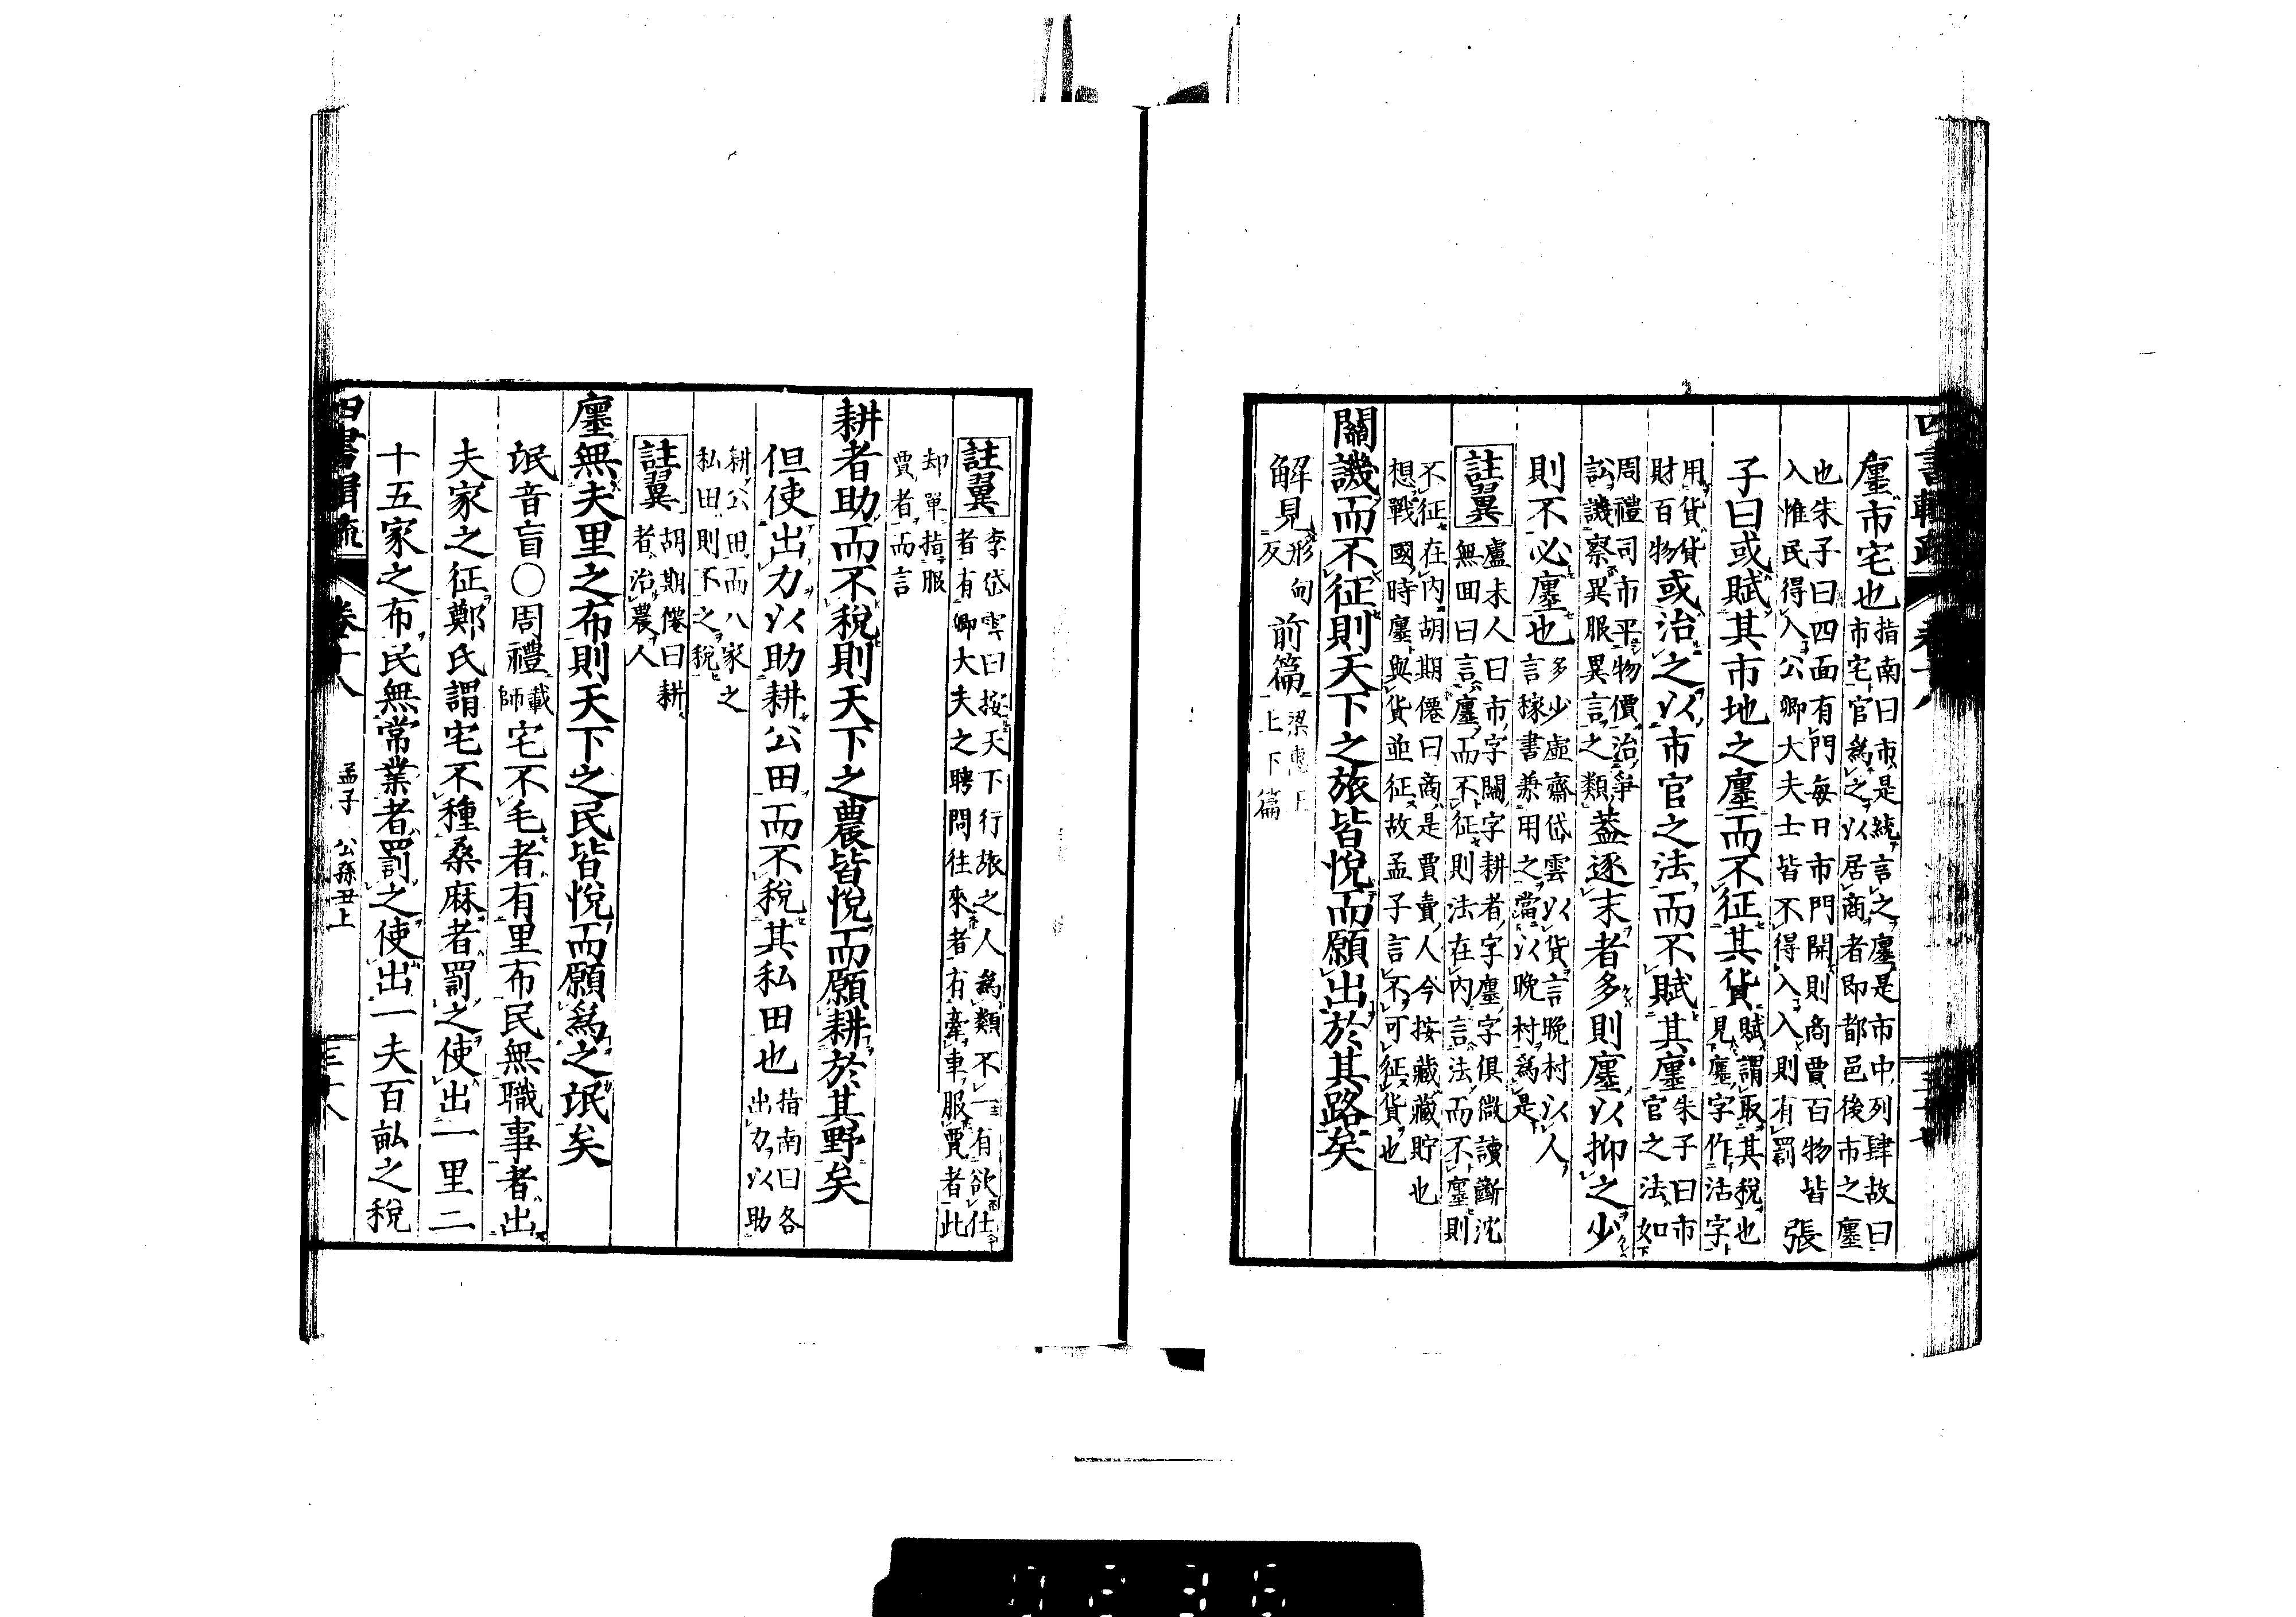 四書輯疏 卷十八 三十七
廛市宅也指南曰市是統言之廛是市中列肆故曰
市宅官為之以居商者即都邑後市之廛
也朱子曰四面有門每日市門開則商賈百物皆
入惟民得入公卿大夫士皆不得入入則有罰張
子曰或賦其市地之廛而不征其貨賦謂取其稅也
見廛字作活字
用貨貨或治之以市官之法而不賦其廛朱子曰市
財百物官之法如
周禮司市平物價治爭
訟譏察異服異言之類蓋逐末者多則廛以抑之少
則不必廛也多少虛齋岱雲以貨言晚村以人
言稼書兼用之當以晚村為是
註翼盧未人曰市字關字耕者字廛字俱微讀斷沈
無回曰言廛而不征則法在內言法而不廛則
不征在內胡期僊曰商是賈賣人今按藏藏貯也
想戰國時廛與貨並征故孟子言不可征貨也
關譏而不征則天下之旅皆悅而願出於其路矣
解見形甸反前篇梁惠上
上下篇
註翼李岱雲曰按天下行旅之人為類不一有欲仕
者有卿大夫之聘問往來者有牽車服賈者此
却單指服
賈者而言
耕者助而不稅則天下之農皆悅而願耕於其野矣
但使出力以助耕公田而不稅其私田也指南曰各
出力以助
耕公田而八家之
私田則不之稅
註翼胡期僊曰耕
者治農人
廛無夫里之布則天下之民皆悅而願為之氓矣
氓音盲〇周禮載師宅不毛者有里布民無職事者出
夫家之征鄭氏謂宅不種桑麻者罰之使出一里二
十五家之布民無常業者罰之使出一夫百畝之稅
四書輯疏 卷十八 孟子 公孫丑上 三十八